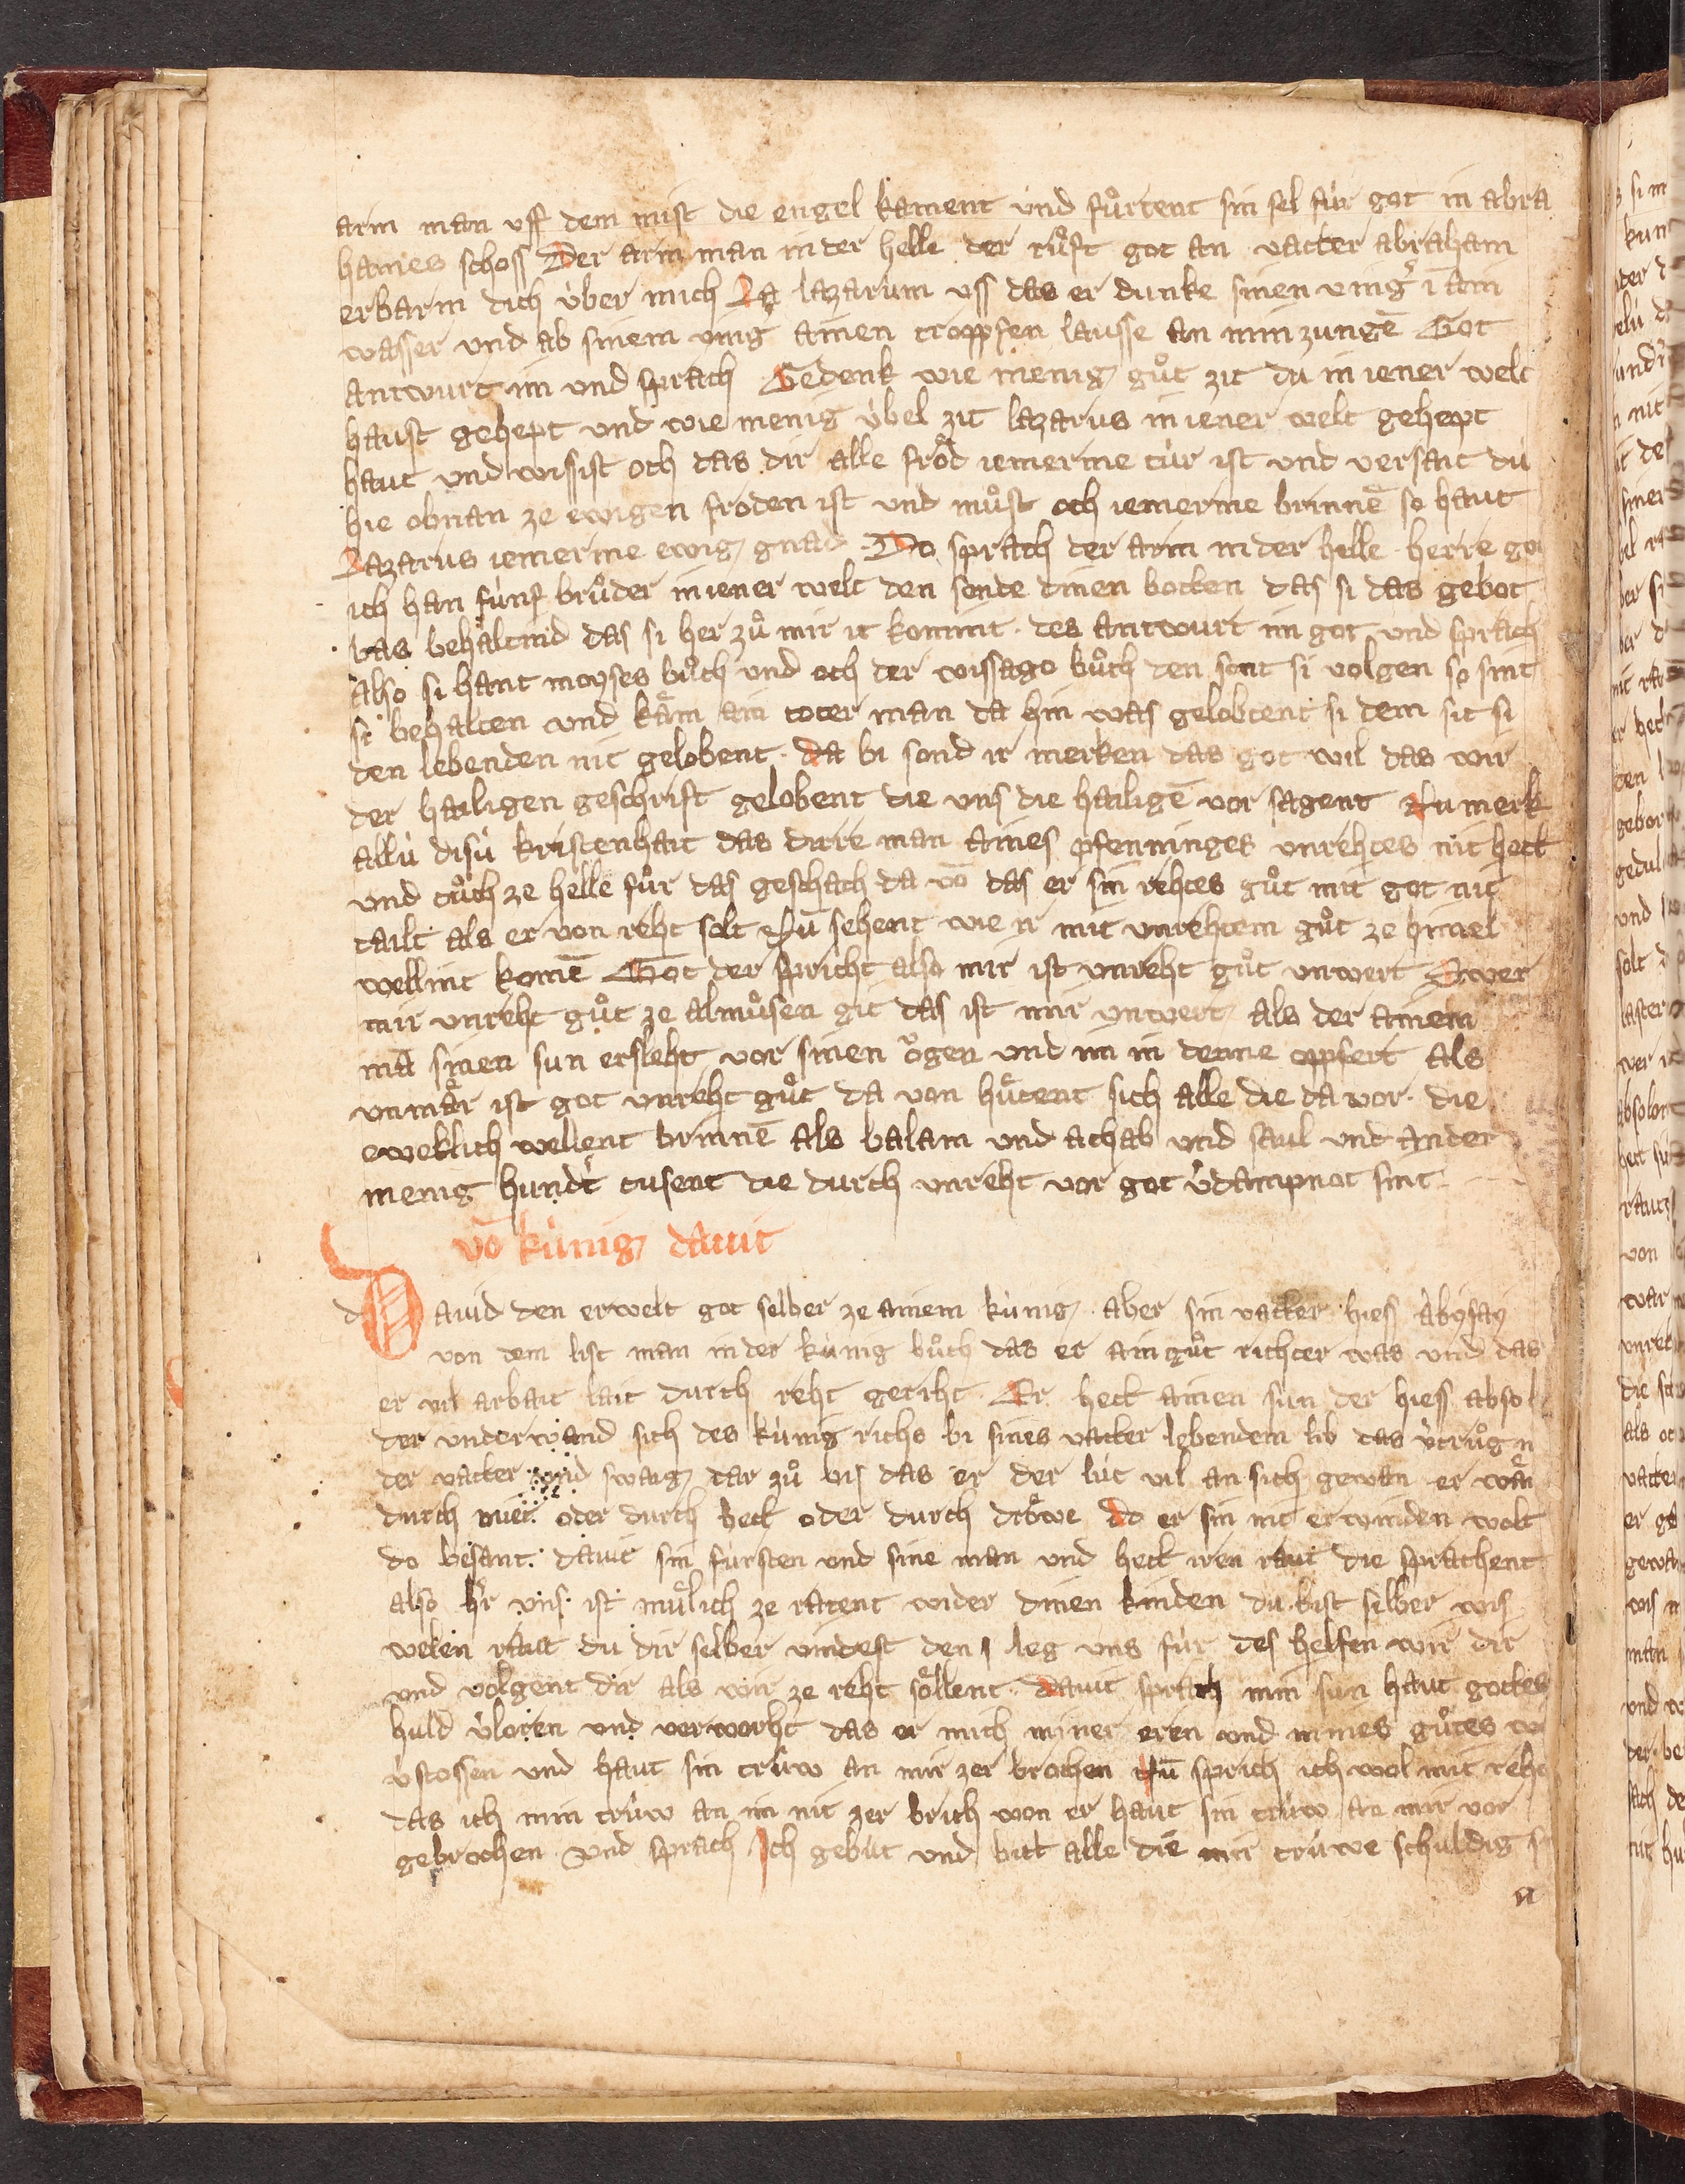 arm man uff dem mist die engel kament und fůrtent sin sel fúr got in abra
hames schoss Der arm man in der helle der růft got an vatter abraham
erbarm dich úber mich La lazarum uss das er dunke sinen ving̾ ī ain
wasser und ab sinem ving ainen troppfen lausse an min zungē Got
antwurt im und sprach Gedenk wie menig gůt zit du in iener welt
haust gehept und wie menig úbel zit lazarus in iener welt gehept
haut und wissist och das dir alle frőd iemerme túr ist und versait du
hie obnan ze ewigen froden ist und můst och iemerme brinnē so haut
Lazarus iemerme ewig gnad Do sprach der arm in der helle herre go
ich han fúnf brůder in iener welt den sende dinen botten das si das gebot
bas behaltind das si her zů mir it komint des antwurt im got und sprach
also si hant moyses bůch und och der wissago bůch den sont si volgen so sint
si behalten und kåm ain toter man da hin was gelobtent si dem sit si
den lebenden nit gelobent da bi sond ir merken das got wil das wir
der hailigen geschrift gelobent die uns die hailigē vor sagent Nu merk
allú disú kristenhait das dirre man aines pfenninges unrehtes nit hett
und tůch ze helle fůr das geschach da vō das er sin rehtes gůt mit got nit
tailt als er von reht solt Nū sehent wie ir mit unrehtem gůt ze himel
wellint komē Got der spricht also mir ist unreht gůt unwert Swer
mir unreht gůt ze almůsen git das ist mir unwert als der ainem
mā sinen sun ersleht vor sinen ogen und im in denne oppfert als
unmår ist got unreht gůt da von hůtent sich alle die da vor die
eweklich wellent brinnē als balam und achab und saul und ander
menig hundt̾ tusent die durch unreht vor got v̾dampnot sint
vō kúnig dauit
d Dauid den erwelt got selber ze ainem kúnig aber sin vatter hiess abysay
von dem list man in der kúnig bůch das er ain gůt richter was und das
er vil arbait lait durch reht geriht Er hett ainen sun der hiess absol
der underwand sich des kúnig richs bi sines vatter lebendem lib das v̾trůg
der vatter und swaig dar zů bis das er der lút vil an sich gewan er wån
durch miet oder durch bett oder durch drőwe do er sin nit erwinden wolt
do besant dauit sin fúrsten und sine man und hett iren raut die sprachent
also h̾r uns ist můlich ze ratent wider dinen kinden du bist selber wis
welen raut du dir selber vindest den leg uns fúr des helfen wir dir
und volgent dir als wir ze reht sőllent dauit sprach min sun haut gottes
huld v̾loren und verworht das er mich miner eren und mines gůtes
v̾stossen und haut sin trúw an mir zer brochen Nū sprich ich wol mit reht
das ich min trúw an im nit zer brich von er haut sin trúw an mir vor
gebrochen und sprach Ich gebút und bitt alle die mir trúwe schuldig